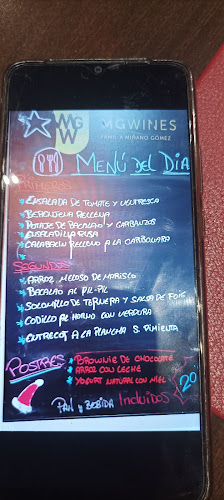 MG
W
MGWINES
FAMILIA MIÑANO GÓMEZ
MENÚ DEL DIA
PRIMEROS
ENSALADA DE TOMATE Y VENTRESCA
BERENJENA RELLENA
POTAJE DE BACALAO Y GARBANZOS
ENSALADILLA RUSA
CALABACIN RELLENO A LA CARBONARA
SEGUNDOS
ARROZ MELOSO DE MARISCO
BACALAO AL PIL-PIL
SOLOMILLO DE TERNERA Y SALSA DE FOIE
CODILLO AL HORNO CON VERDURA
ENTRECOT A LA PLANCHA S. PIMIENTA
POSTRES
BROWNIE DE CHOCOLATE
ARROZ CON LECHE
YOGURT NATURAL CON MIEL
PAN Y BEBIDA INCLUIDOS